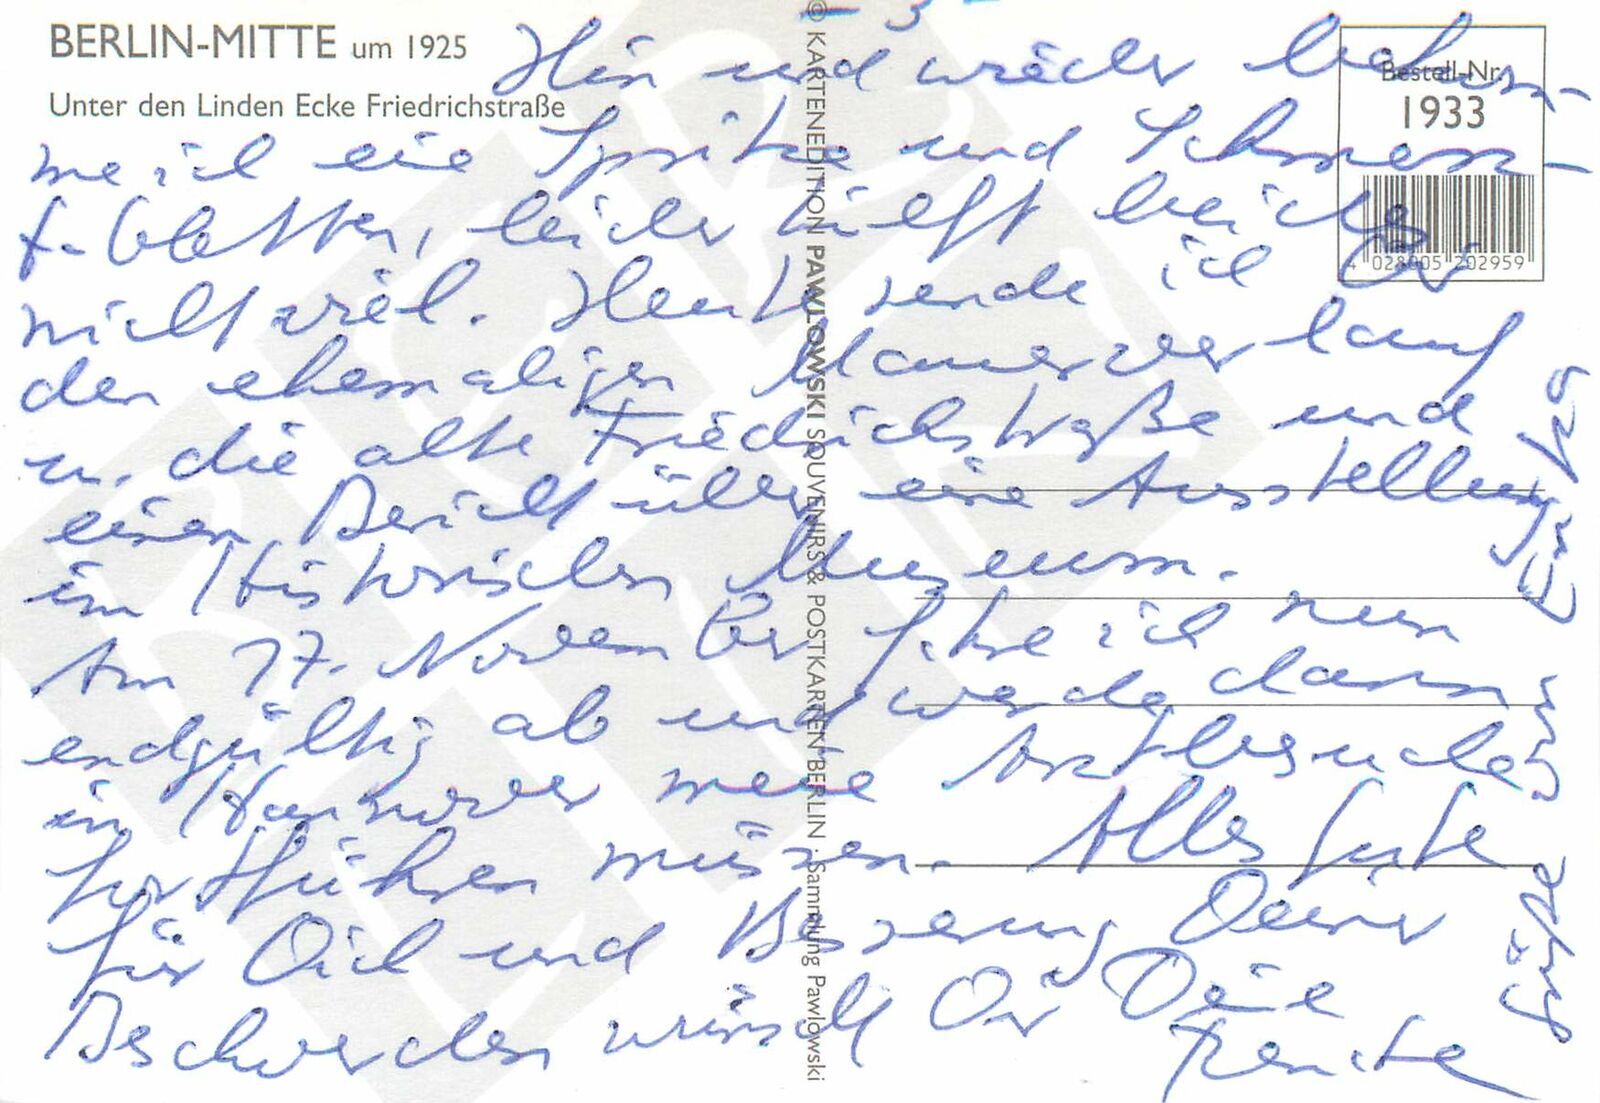 - 3 -
BERLIN-MITTE um 1925
Unter den Linden Ecke Friedrichstraße
Bestell-Nr.
1933
4 028005 202959
© KARTENEDITION PAWLOWSKI SOUVENIRS & POSTKARTEN BERLIN · Sammlung Pawlowski
Hin und wieder bekom-
me ich eine Spritze und Schmerz-
tabletten, leider hilft beides
nicht viel. Heute sende ich Dir
den ehemaligen Mauerverlauf
u. die alte Friedrichstraße und
einen Bericht über eine Ausstellung
im Historischen Museum.
Am 17. November fahre ich nun
endgültig ab und werde dann
in Hannover meine Arztbesuche
fortführen müssen. Alles Gute
für Dich und Besserung Deiner
Beschwerden wünscht Dir Deine
Renate